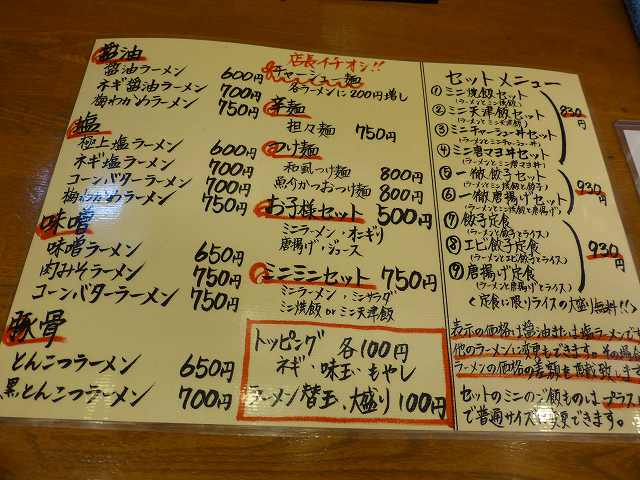 醤油
醤油ラーメン 600円
ネギ醤油ラーメン 700円
梅わかめラーメン 750円
塩
極上塩ラーメン 600円
ネギ塩ラーメン 700円
コーンバターラーメン 700円
梅わかめラーメン 750円
味噌
味噌ラーメン 650円
肉みそラーメン 750円
コーンバターラーメン 750円
豚骨
とんこつラーメン 650円
黒とんこつラーメン 700円
店長イチオシ!!
チャーシュー麺
各ラーメンに200円増し
辛麺
担々麺 750円
つけ麺
和風つけ麺 800円
魚介かつおつけ麺 800円
お子様セット 500円
ミニラーメン・オニギリ
唐揚げ・ジュース
ミニミニセット 750円
ミニラーメン・ミニサラダ
ミニ焼飯 or ミニ天津飯
トッピング 各100円
ネギ・味玉・もやし
ラーメン替玉、大盛り 100円
セットメニュー
① ミニ焼飯セット
(ラーメンとミニ焼飯)
② ミニ天津飯セット
(ラーメンとミニ天津飯)
③ ミニチャーシュー丼セット
(ラーメンとミニチャーシュー丼)
④ ミニ唐マヨ丼セット
(ラーメンとミニ唐マヨ丼)
830円
⑤ 一徹餃子セット
(ラーメンとミニ焼飯と餃子)
⑥ 一徹唐揚げセット
(ラーメンとミニ焼飯と唐揚げ)
930円
⑦ 餃子定食
(ラーメンと餃子とライス)
⑧ エビ餃子定食
(ラーメンとエビ餃子とライス)
⑨ 唐揚げ定食
(ラーメンと唐揚げとライス)
930円
<定食に限りライスの大盛り無料!!>
表示の価格は醤油または塩ラーメンで
他のラーメンに変更もできます。その場
ラーメンの価格の差額を頂戴致します
セットのミニのご飯ものは、プラス
で普通サイズに変更できます。